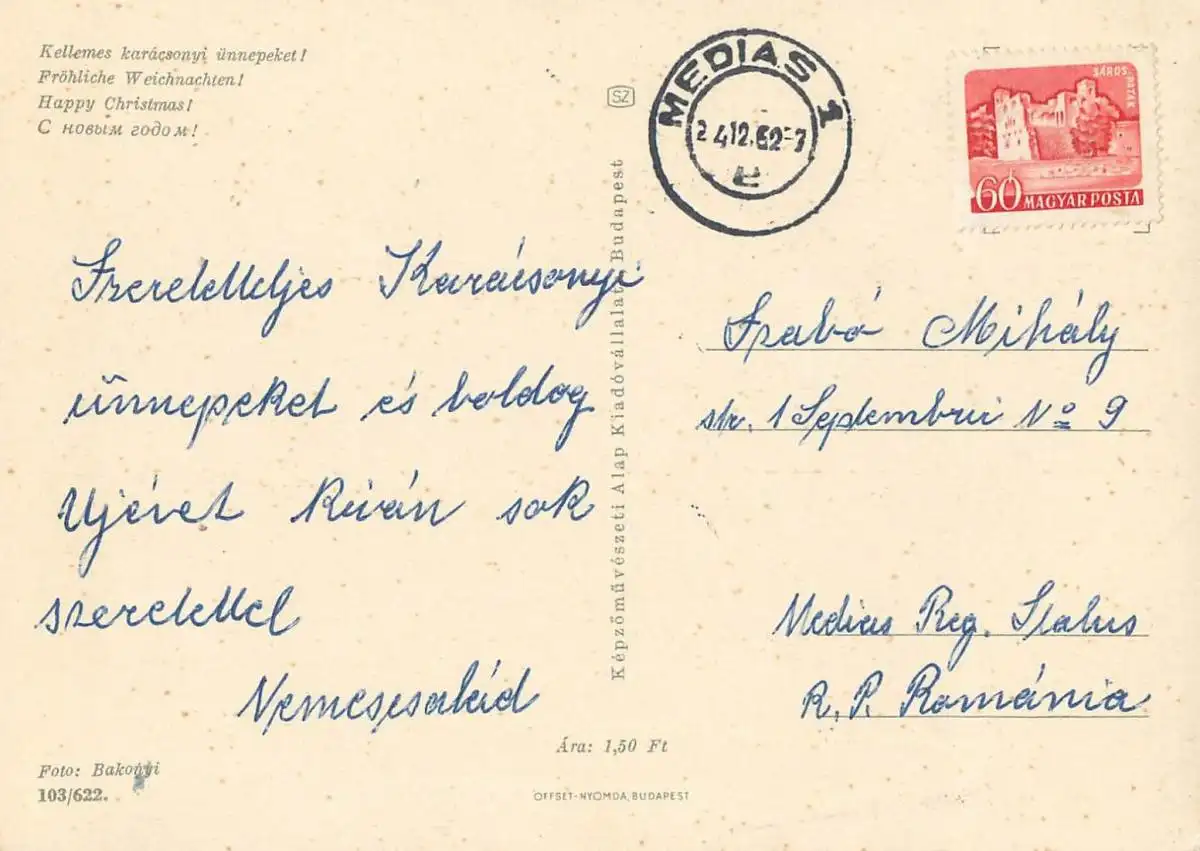 Kellemes karácsonyi ünnepeket!
Fröhliche Weichnachten!
Happy Christmas!
С новым годом!
SZ
MEDIAS 1
24.12.62-7
e
SÁROSPATAK
60f MAGYAR POSTA
Szeretetteljes Karácsonyi
ünnepeket és boldog
Ujévet kíván sok
szeretettel
Nemescsalád
Képzőművészeti Alap Kiadóvállalat, Budapest
Szabó Mihály
str. 1 Septembrii No 9
Medias Reg. Stalus
R. P. Románia
Ára: 1,50 Ft
Foto: Bakonyi
103/622.
OFFSET-NYOMDA, BUDAPEST